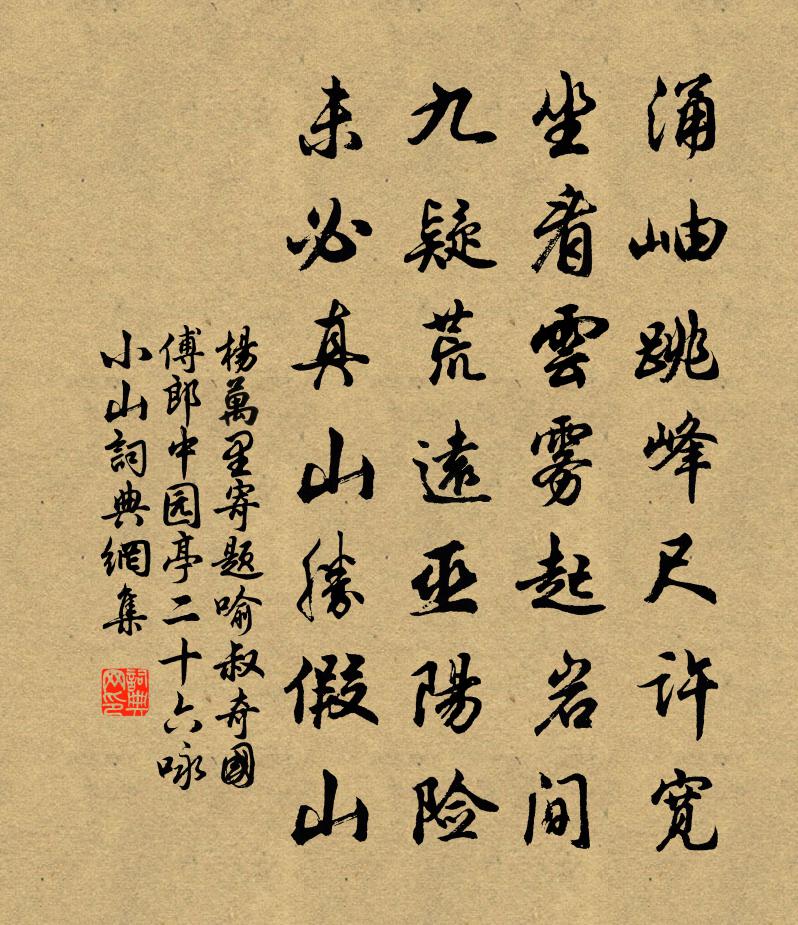 涌岫跳峰尺许宽
坐看雲雾起岩间
九疑荒遠巫陽险
未必真山勝假山
楊萬里寄題喻叔奇國
傅郎中园亭二十六咏
小山詞典網集
詞典
网印